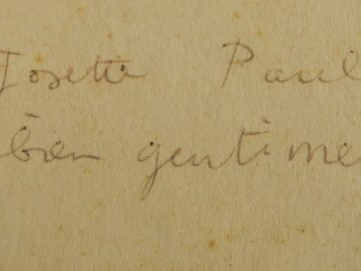 Josette Paul
bien gentime